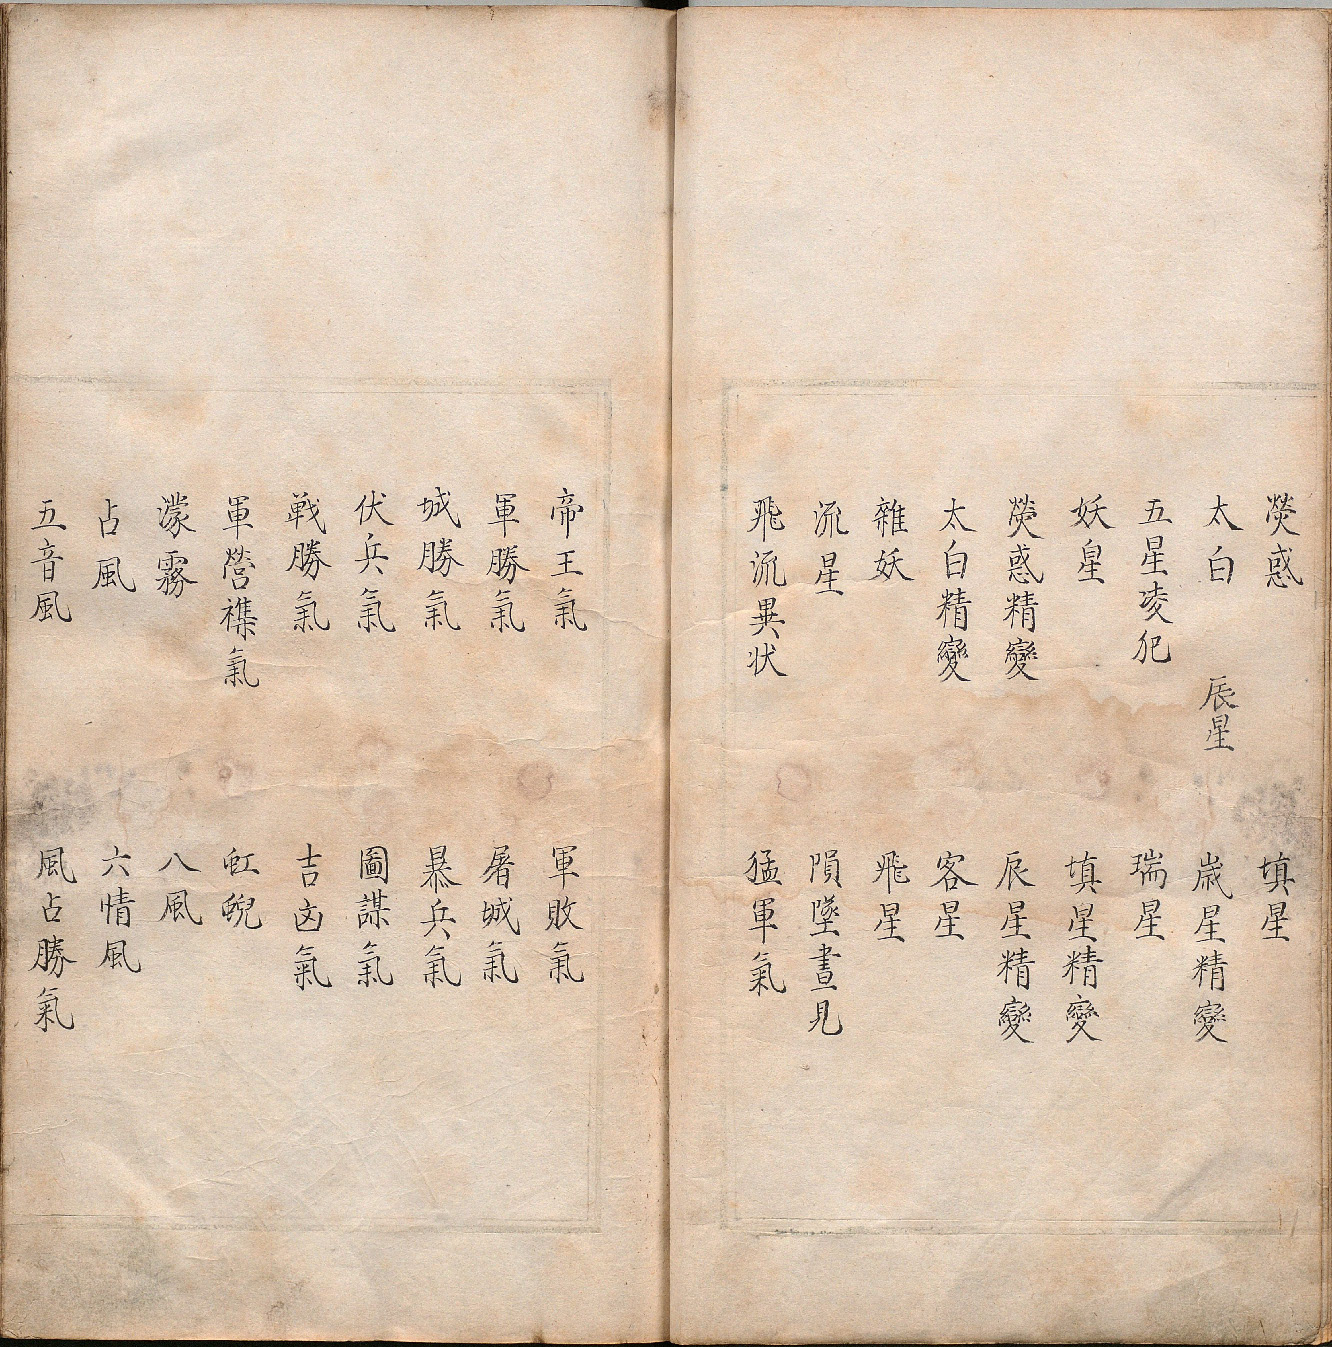 熒惑 填星
太白 辰星 歳星精變
五星凌犯 瑞星
妖星 填星精變
熒惑精變 辰星精變
太白精變 客星
雜妖 飛星
流星 隕墜晝見
飛流異状 猛軍氣
帝王氣 軍敗氣
軍勝氣 屠城氣
城勝氣 暴兵氣
伏兵氣 圖謀氣
戦勝氣 吉凶氣
軍營襍氣 虹蜺
濛霧 八風
占風 六情風
五音風 風占勝氣